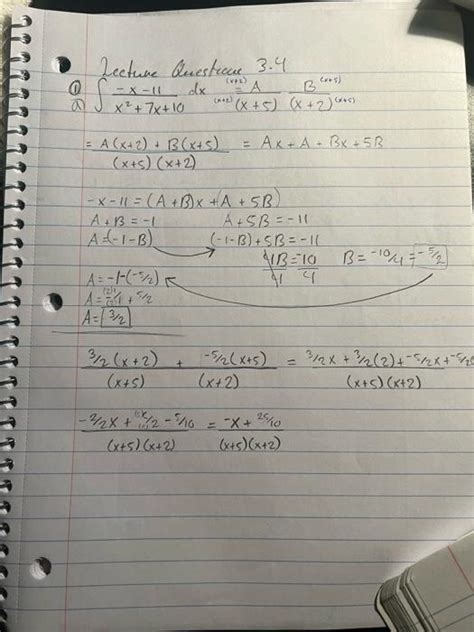 Lecture Questions 3.4
① a) ∫ -x-11 / x² + 7x + 10 dx = (x+2) A (x+2) / (x+5) B (x+5) / (x+2) (x+5)
= A(x+2) + B(x+5) / (x+5)(x+2) = Ax + A + Bx + 5B
-x-11 = (A+B)x + (A + 5B)
A + B = -1 A + 5B = -11
A = (-1-B) (-1-B) + 5B = -11
4B/4 = -10/4 B = -10/4 = -5/2
A = -1-(-5/2)
A = 1 + 5/2
A = 3/2
3/2(x+2) / (x+5) + -5/2(x+5) / (x+2) = 3/2x + 3/2(2) + -5/2x + -5/10 / (x+5)(x+2)
-2/2x + /2 - 5/10 / (x+5)(x+2) = -x + 25/10 / (x+5)(x+2)